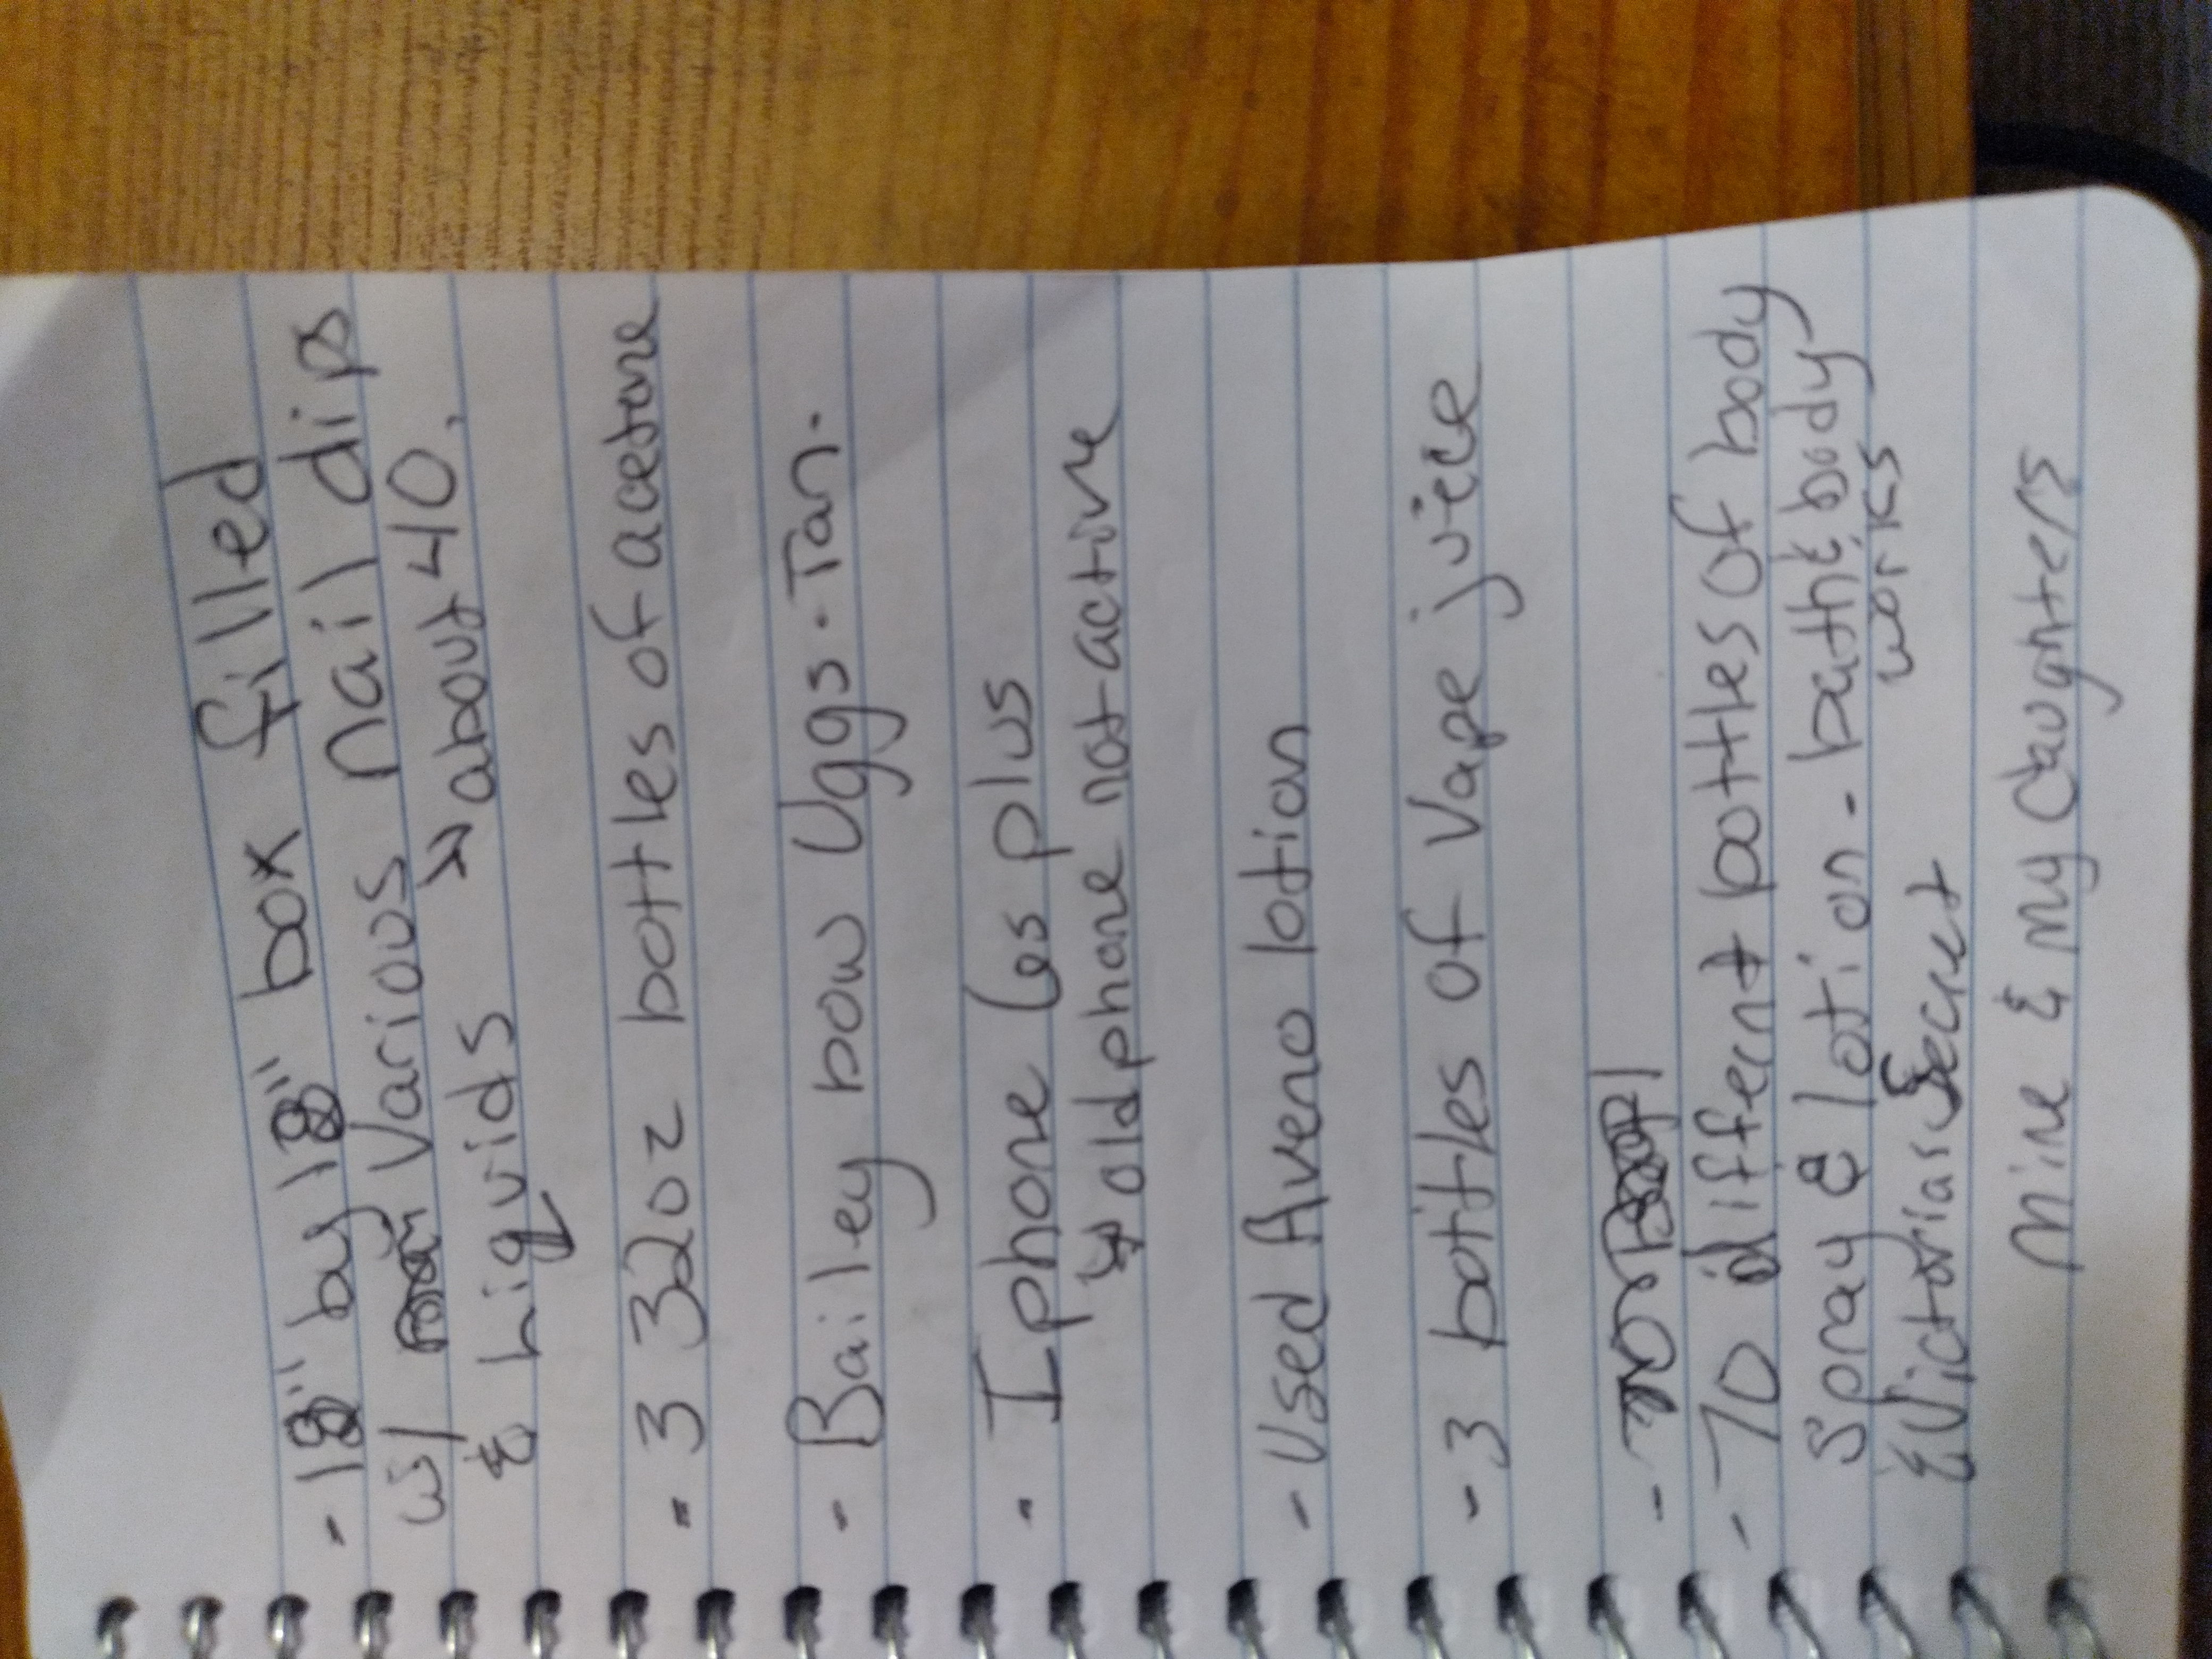 - 18" by 18" box filled
w/ various nail dips
& liquids → about 40.
- 3 32oz bottles of acetone
- Bailey bow Uggs - Tan.
- Iphone 6s plus
↳ old phone not active
- Used Aveno lotion
- 3 bottles of Vape juice
-
- 10 different bottles of body
Spray & lotion - bath & body
works
& Victorias Secret
Mine & my daughters